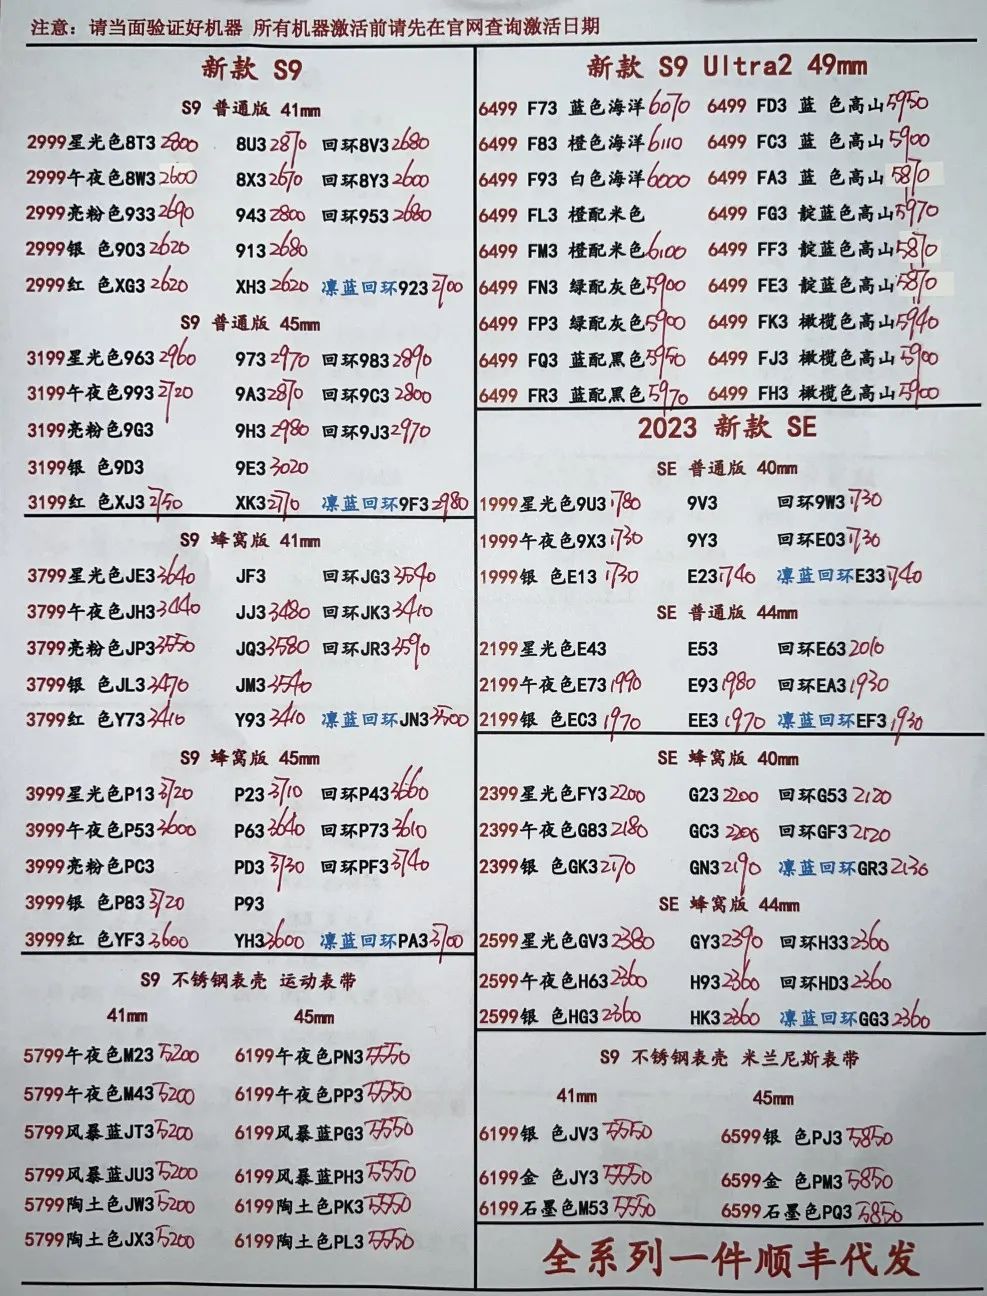 注意：请当面验证好机器 所有机器激活前请先在官网查询激活日期
新款 S9
S9 普通版 41mm
2999星光色8T3 2800 8U3 2870 回环8V3 2680
2999午夜色8W3 2600 8X3 2670 回环8Y3 2600
2999亮粉色933 2690 943 2800 回环953 2680
2999银 色903 2620 913 2680
2999红 色XG3 2620 XH3 2620 凛蓝回环923 2700
S9 普通版 45mm
3199星光色963 2960 973 2970 回环983 2890
3199午夜色993 2720 9A3 2870 回环9C3 2800
3199亮粉色9G3 9H3 2980 回环9J3 2970
3199银 色9D3 9E3 3020
3199红 色XJ3 2750 XK3 2770 凛蓝回环9F3 2980
S9 蜂窝版 41mm
3799星光色JE3 3640 JF3 回环JG3 3540
3799午夜色JH3 3440 JJ3 3480 回环JK3 3410
3799亮粉色JP3 3550 JQ3 3580 回环JR3 3590
3799银 色JL3 3470 JM3 3540
3799红 色Y73 3410 Y93 3410 凛蓝回环JN3 3500
S9 蜂窝版 45mm
3999星光色P13 3720 P23 3710 回环P43 3660
3999午夜色P53 3600 P63 3640 回环P73 3610
3999亮粉色PC3 PD3 3730 回环PF3 3740
3999银 色P83 3720 P93
3999红 色YF3 3600 YH3 3600 凛蓝回环PA3 3700
S9 不锈钢表壳 运动表带
41mm 45mm
5799午夜色M23 5200 6199午夜色PN3 5550
5799午夜色M43 5200 6199午夜色PP3 5550
5799风暴蓝JT3 5200 6199风暴蓝PG3 5550
5799风暴蓝JU3 5200 6199风暴蓝PH3 5550
5799陶土色JW3 5200 6199陶土色PK3 5550
5799陶土色JX3 5200 6199陶土色PL3 5550
新款 S9 Ultra2 49mm
6499 F73 蓝色海洋 6070 6499 FD3 蓝 色高山 5950
6499 F83 橙色海洋 6110 6499 FC3 蓝 色高山 5900
6499 F93 白色海洋 6000 6499 FA3 蓝 色高山 5870
6499 FL3 橙配米色 6499 FG3 靛蓝色高山 5970
6499 FM3 橙配米色 6100 6499 FF3 靛蓝色高山 5870
6499 FN3 绿配灰色 5900 6499 FE3 靛蓝色高山 5870
6499 FP3 绿配灰色 5900 6499 FK3 橄榄色高山 5940
6499 FQ3 蓝配黑色 5950 6499 FJ3 橄榄色高山 5900
6499 FR3 蓝配黑色 5970 6499 FH3 橄榄色高山 5900
2023 新款 SE
SE 普通版 40mm
1999星光色9U3 1780 9V3 回环9W3 1730
1999午夜色9X3 1730 9Y3 回环E03 1730
1999银 色E13 1730 E23 1740 凛蓝回环E33 1740
SE 普通版 44mm
2199星光色E43 E53 回环E63 2010
2199午夜色E73 1990 E93 1980 回环EA3 1930
2199银 色EC3 1970 EE3 1970 凛蓝回环EF3 1930
SE 蜂窝版 40mm
2399星光色FY3 2200 G23 2200 回环G53 2120
2399午夜色G83 2180 GC3 2200 回环GF3 2120
2399银 色GK3 2170 GN3 2190 凛蓝回环GR3 2130
SE 蜂窝版 44mm
2599星光色GV3 2380 GY3 2390 回环H33 2360
2599午夜色H63 2360 H93 2360 回环HD3 2360
2599银 色HG3 2360 HK3 2360 凛蓝回环GG3 2360
S9 不锈钢表壳 米兰尼斯表带
41mm 45mm
6199银 色JV3 5550 6599银 色PJ3 5850
6199金 色JY3 5550 6599金 色PM3 5850
6199石墨色M53 5550 6599石墨色PQ3 5850
全系列一件顺丰代发